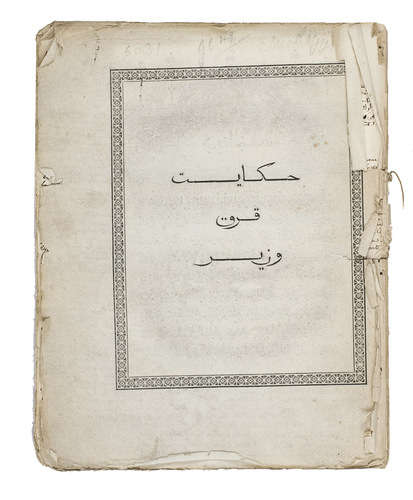 حكايت
قرق
وزير